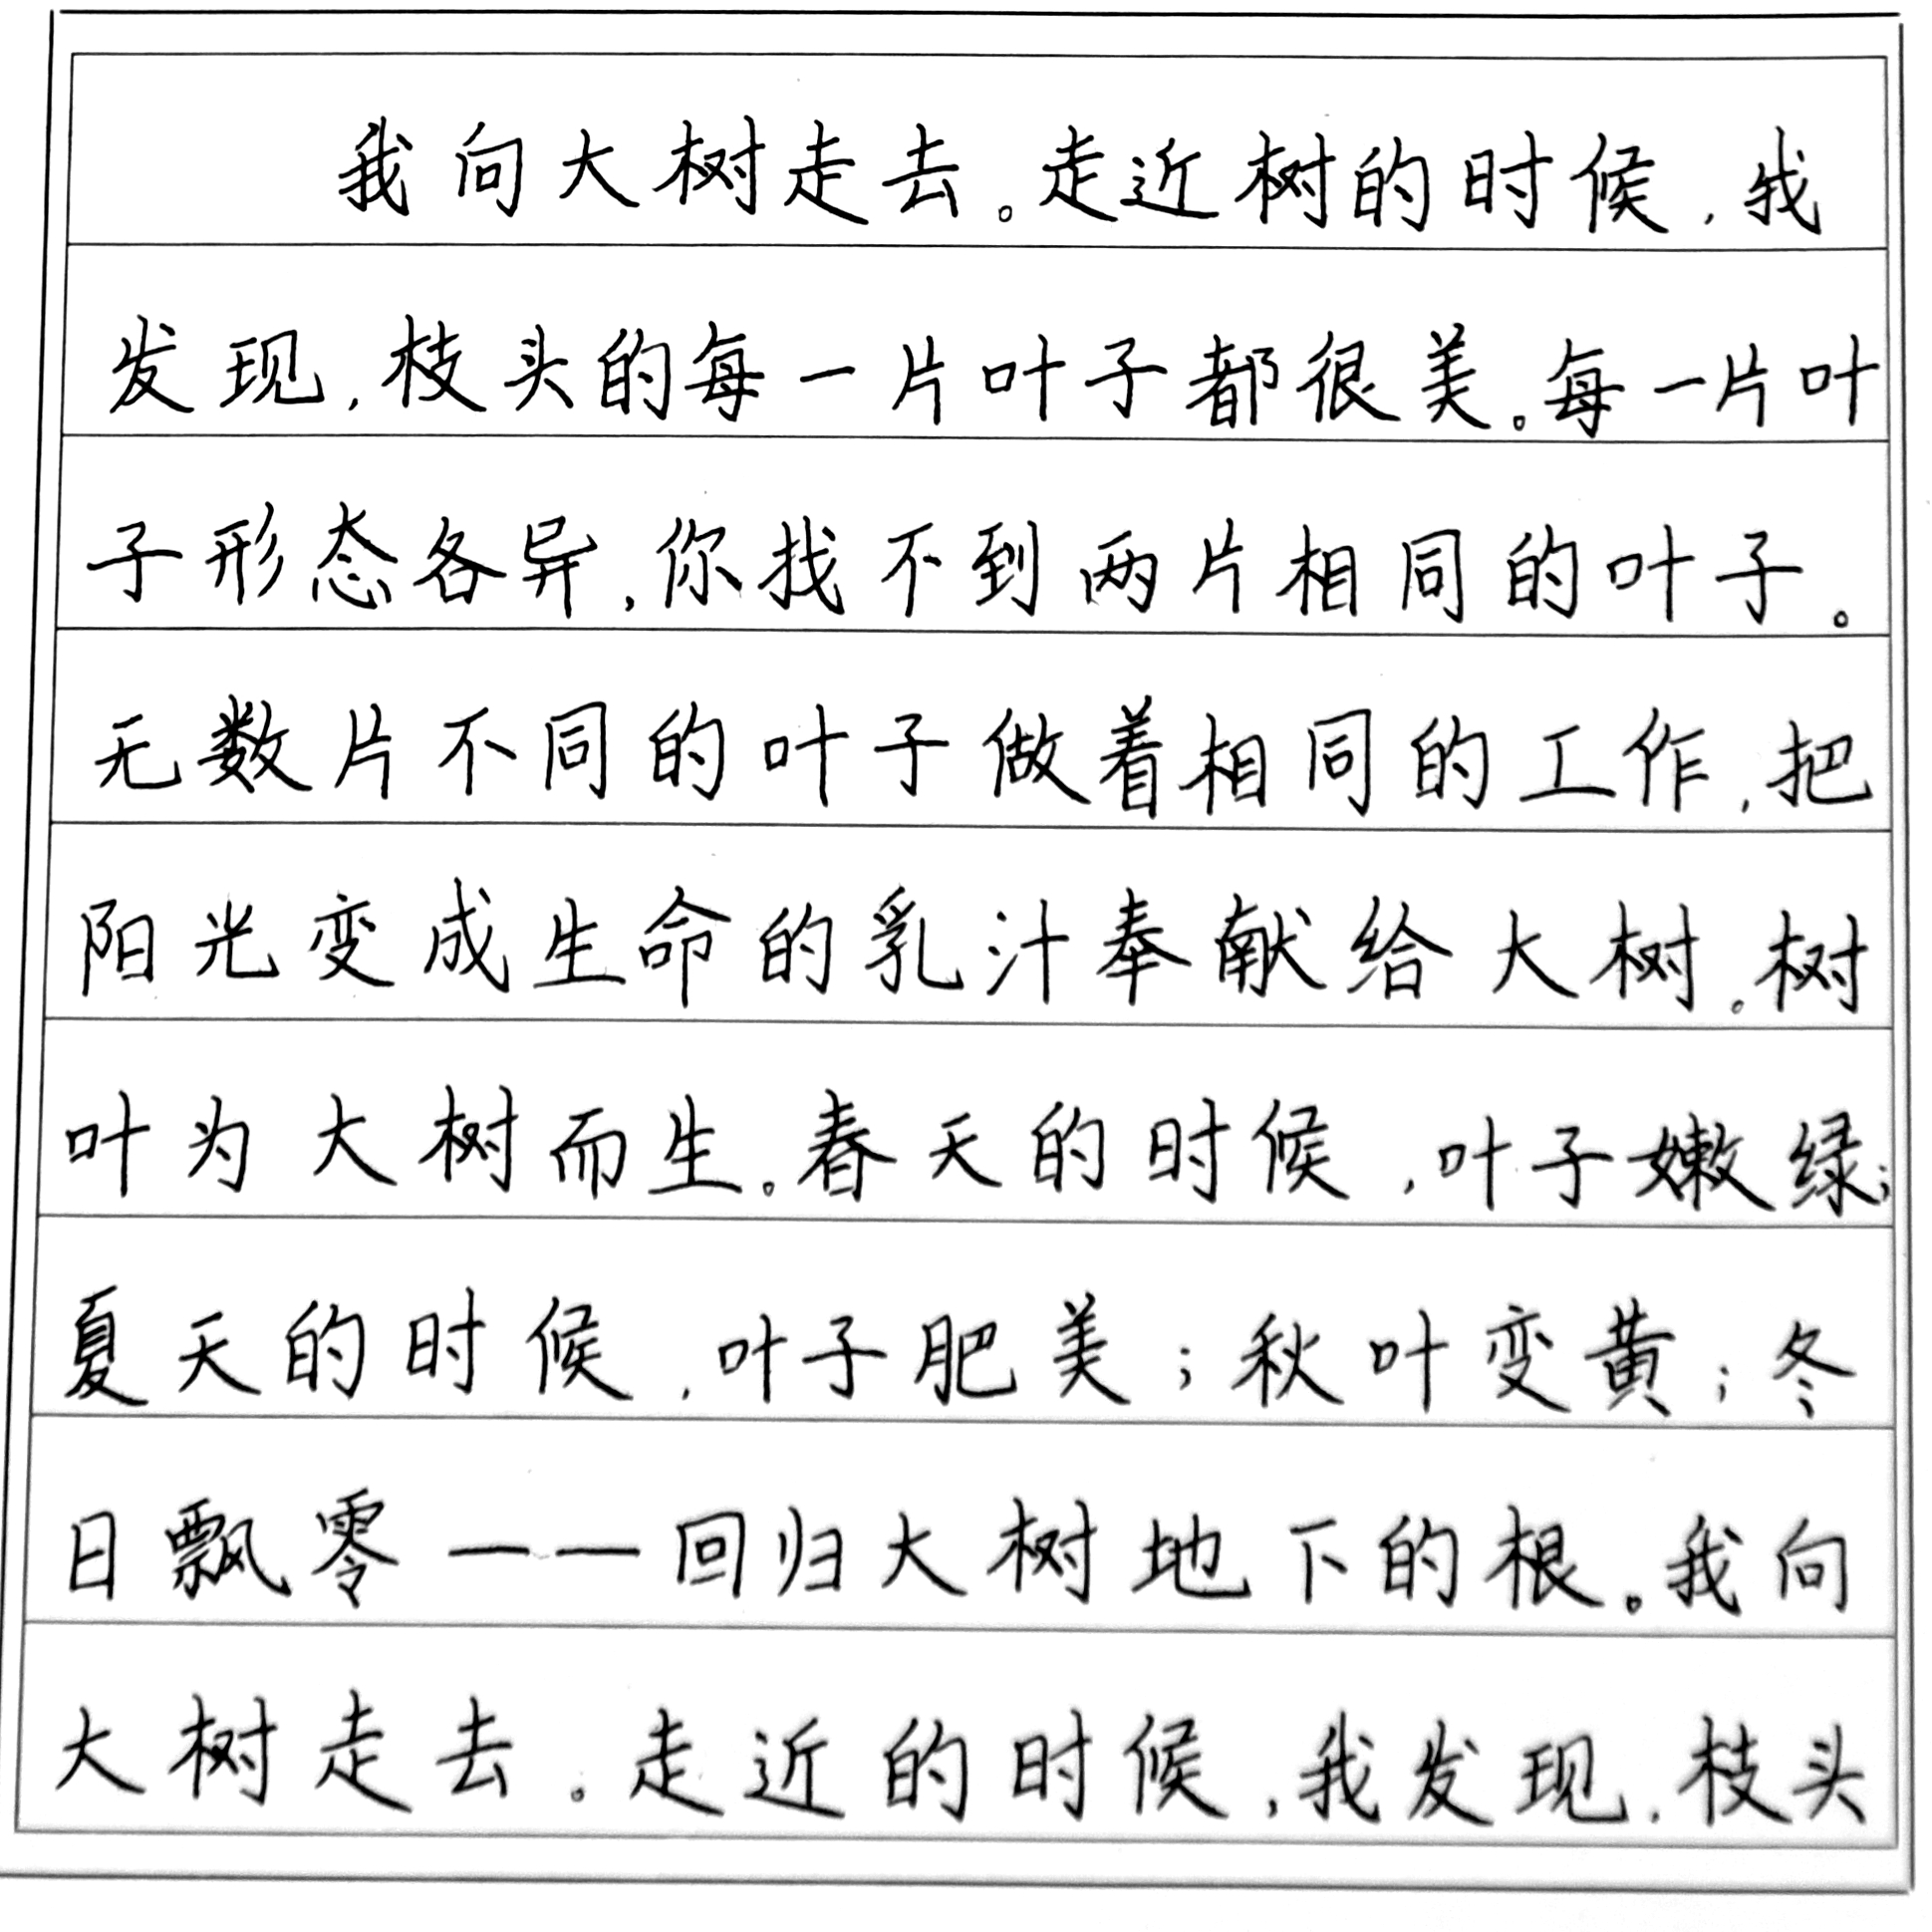 我向大树走去。走近树的时候,我
发现,枝头的每一片叶子都很美。每一片叶
子形态各异,你找不到两片相同的叶子。
无数片不同的叶子做着相同的工作,把
阳光变成生命的乳汁奉献给大树。树
叶为大树而生。春天的时候,叶子嫩绿;
夏天的时候,叶子肥美;秋叶变黄;冬
日飘零——回归大树地下的根。我向
大树走去。走近的时候,我发现,枝头